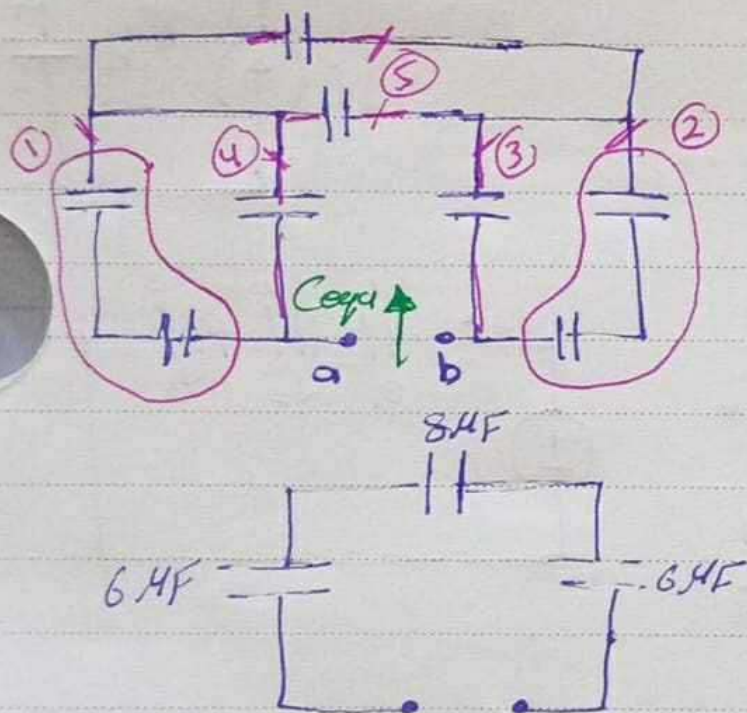 5
1
4
3
2
Cequ
a
b
8μF
6μF
6μF